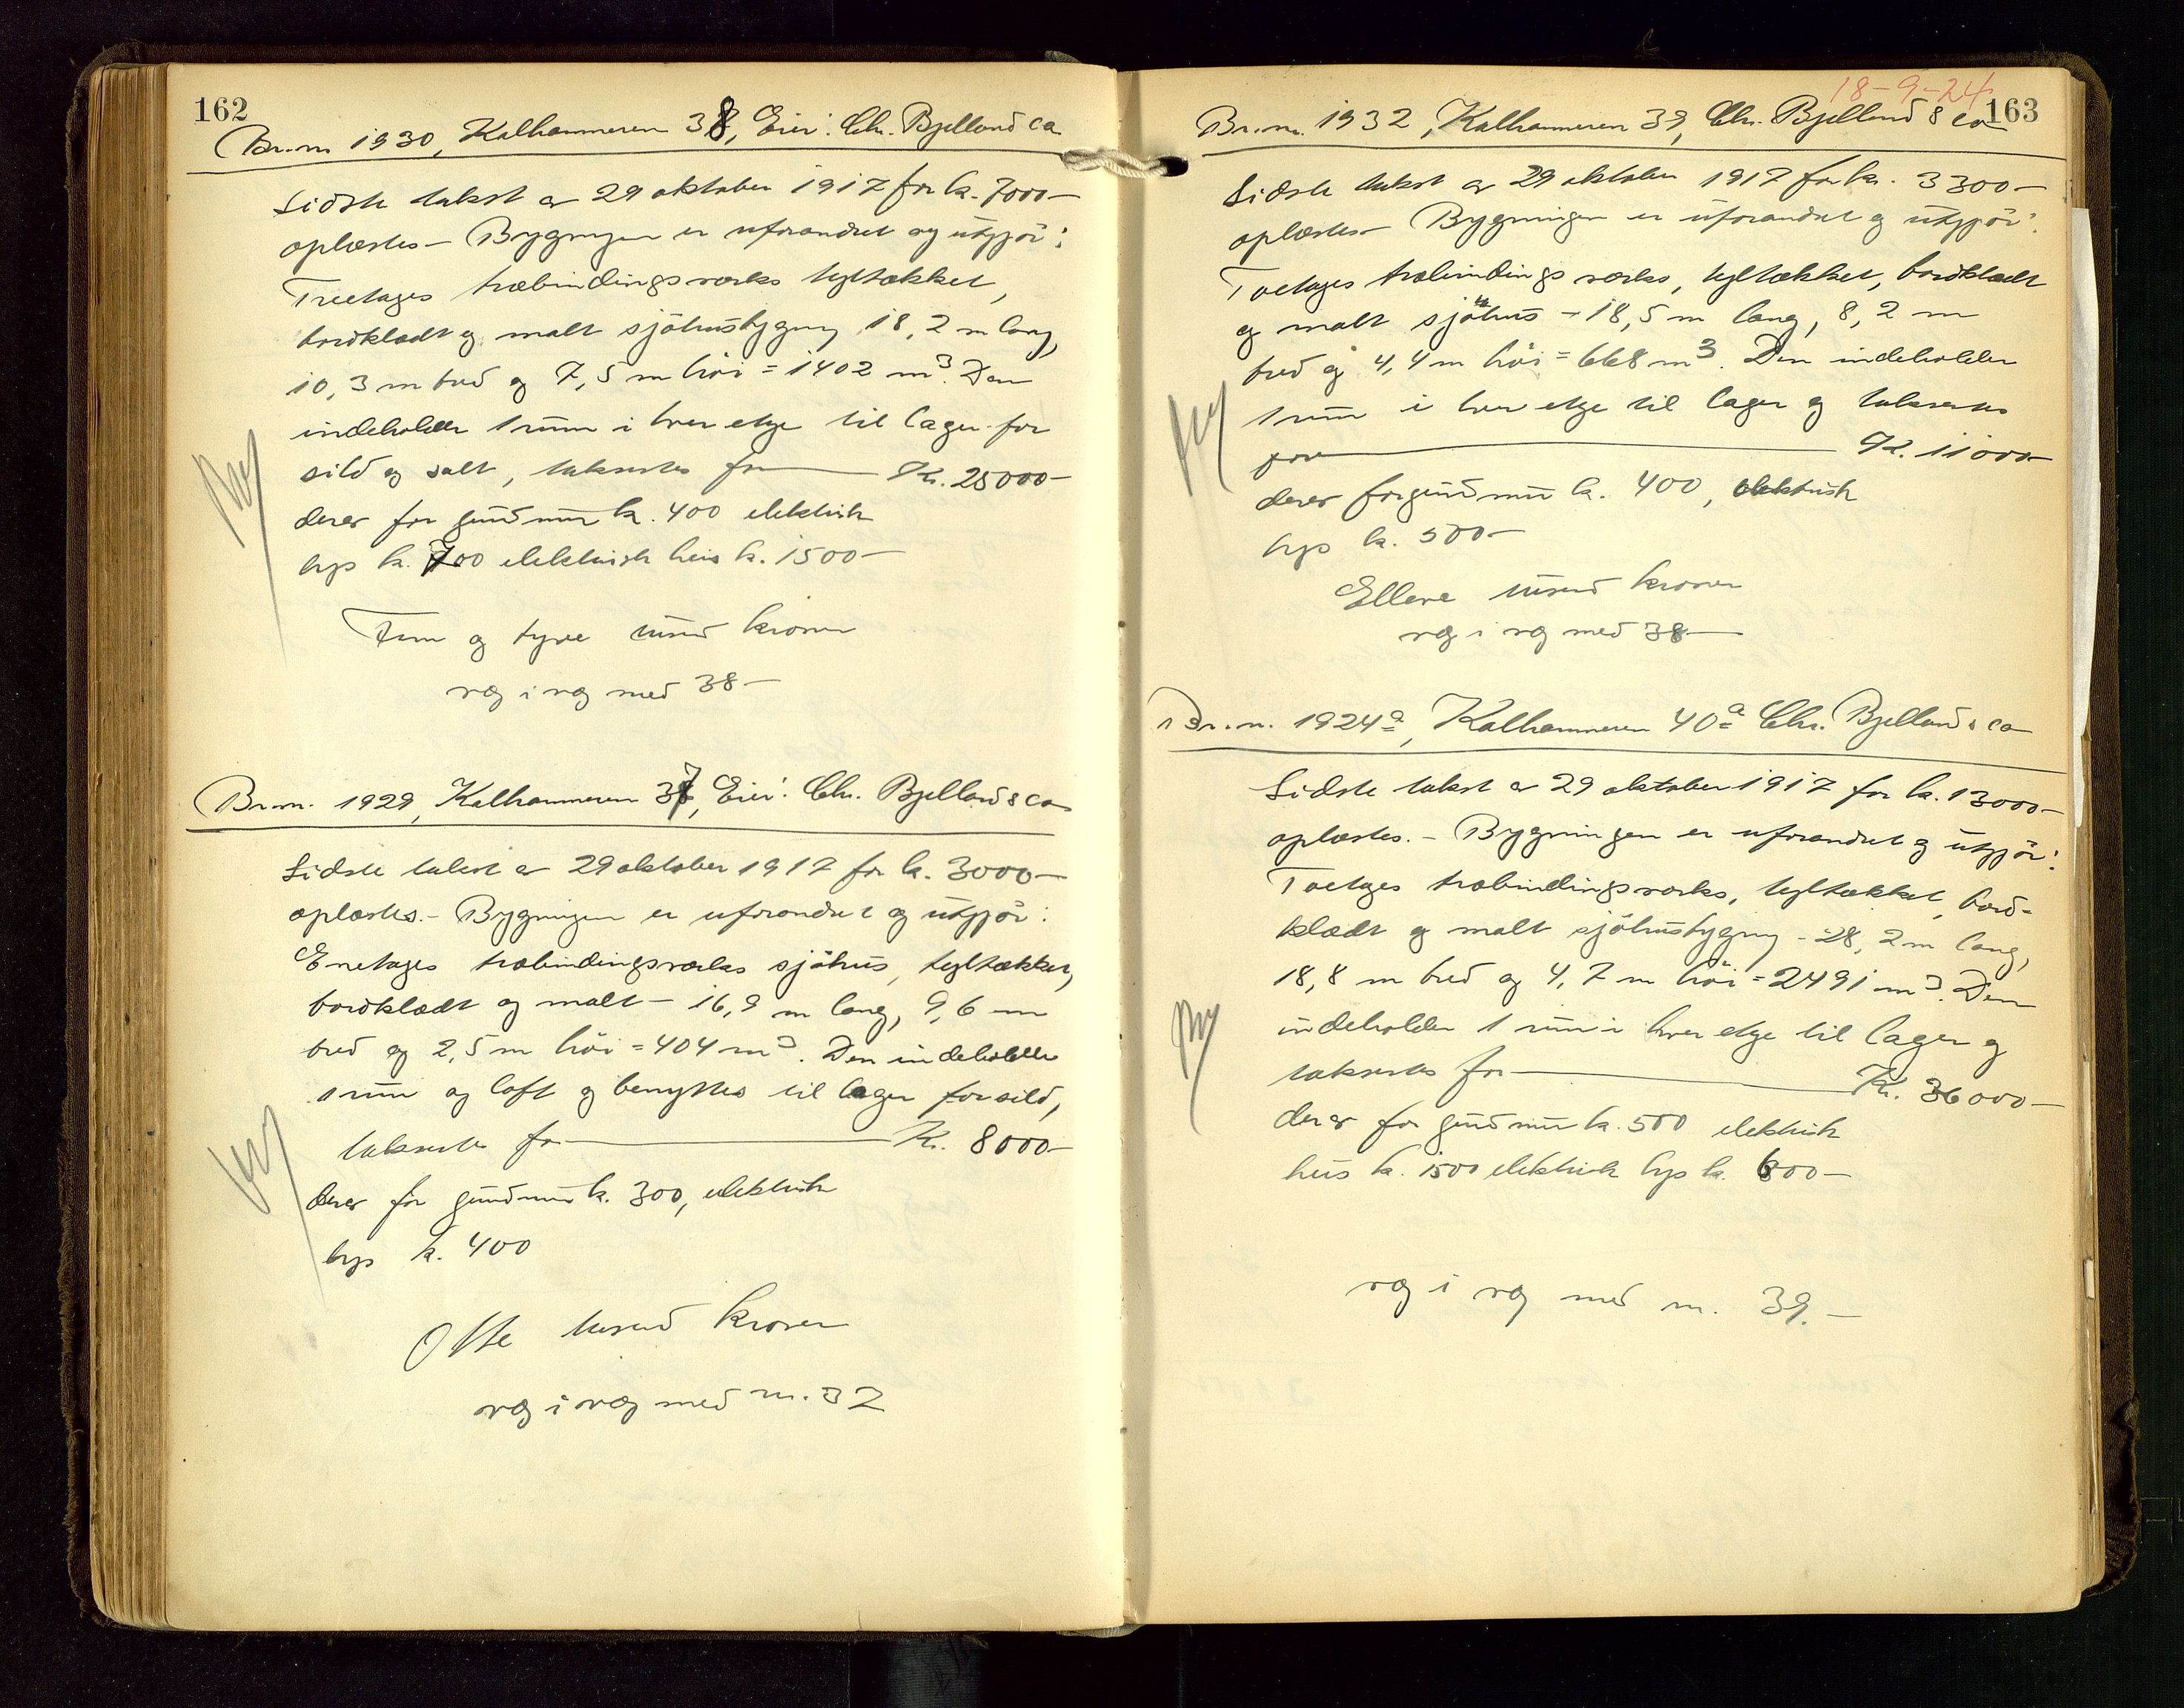 162
Br.nr. 1930, Kalhammeren 38, Eier: Chr. Bjelland Co
Sidste takst av 29 oktober 1917 for kr. 7000—
oplæstes — Bygningen er uforandret og utgjör:
Treetages træbindingsverks tegltækket,
bordklædt og malt sjöhusbygning 18,2 m lang,
10,3 m bred og 7,5 m höi = 1402 m³. Den
indeholder 1 rum i hver etge til lager for
sild og salt, takseres for — Kr. 25000—
derav for grundmur kr. 400 elektrisk
lys kr. 700 elektrisk heis kr. 1500—
Fem og tyve tusend kroner
væg i væg med 38—
Br.nr. 1929, Kalhammeren 37, Eier: Chr. Bjelland & Co
Sidste takst av 29 oktober 1917 for kr. 3000—
oplæstes. — Bygningen er uforandret og utgjör:
Enetages træbindingsverks sjöhus, tegltækket,
bordklædt og malt — 16,9 m lang, 9,6 m
bred og 2,5 m höi = 404 m³. Den indeholder
1 rum og loft og benyttes til lager for sild,
takseres for — Kr. 8000—
derav for grundmur kr. 300, elektrisk
lys kr. 400
Otte tusend kroner
væg i væg med nr. 32
18-9-24
163
Br.nr. 1932, Kalhammeren 39, Chr. Bjelland & Co
Sidste takst av 29 oktober 1917 for kr. 3300—
oplæstes — Bygningen er uforandret og utgjör:
Toetages træbindingsverks, tegltækket, bordklædt
og malt sjöhus — 18,5 m lang, 8,2 m
bred og 4,4 m höi = 668 m³. Den indeholder
1 rum i hver etge til lager og takseres
for — Kr. 11000—
derav for grundmur kr. 400, elektrisk
lys kr. 500—
Elleve tusend kroner
væg i væg med 38—
Br.nr. 1924a, Kalhammeren 40a Chr. Bjelland & Co
Sidste takst av 29 oktober 1917 for kr. 13000—
oplæstes. — Bygningen er uforandret og utgjör:
Toetages træbindingsverks, tegltækket, bord-
klædt og malt sjöhusbygning — 28,2 m lang,
18,8 m bred og 4,7 m höi = 2491 m³. Den
indeholder 1 rum i hver etge til lager og
takseres for — Kr. 36000—
derav for grundmur kr. 500 elektrisk
heis kr. 1500 elektrisk lys kr. 600—
væg i væg med nr. 39.—